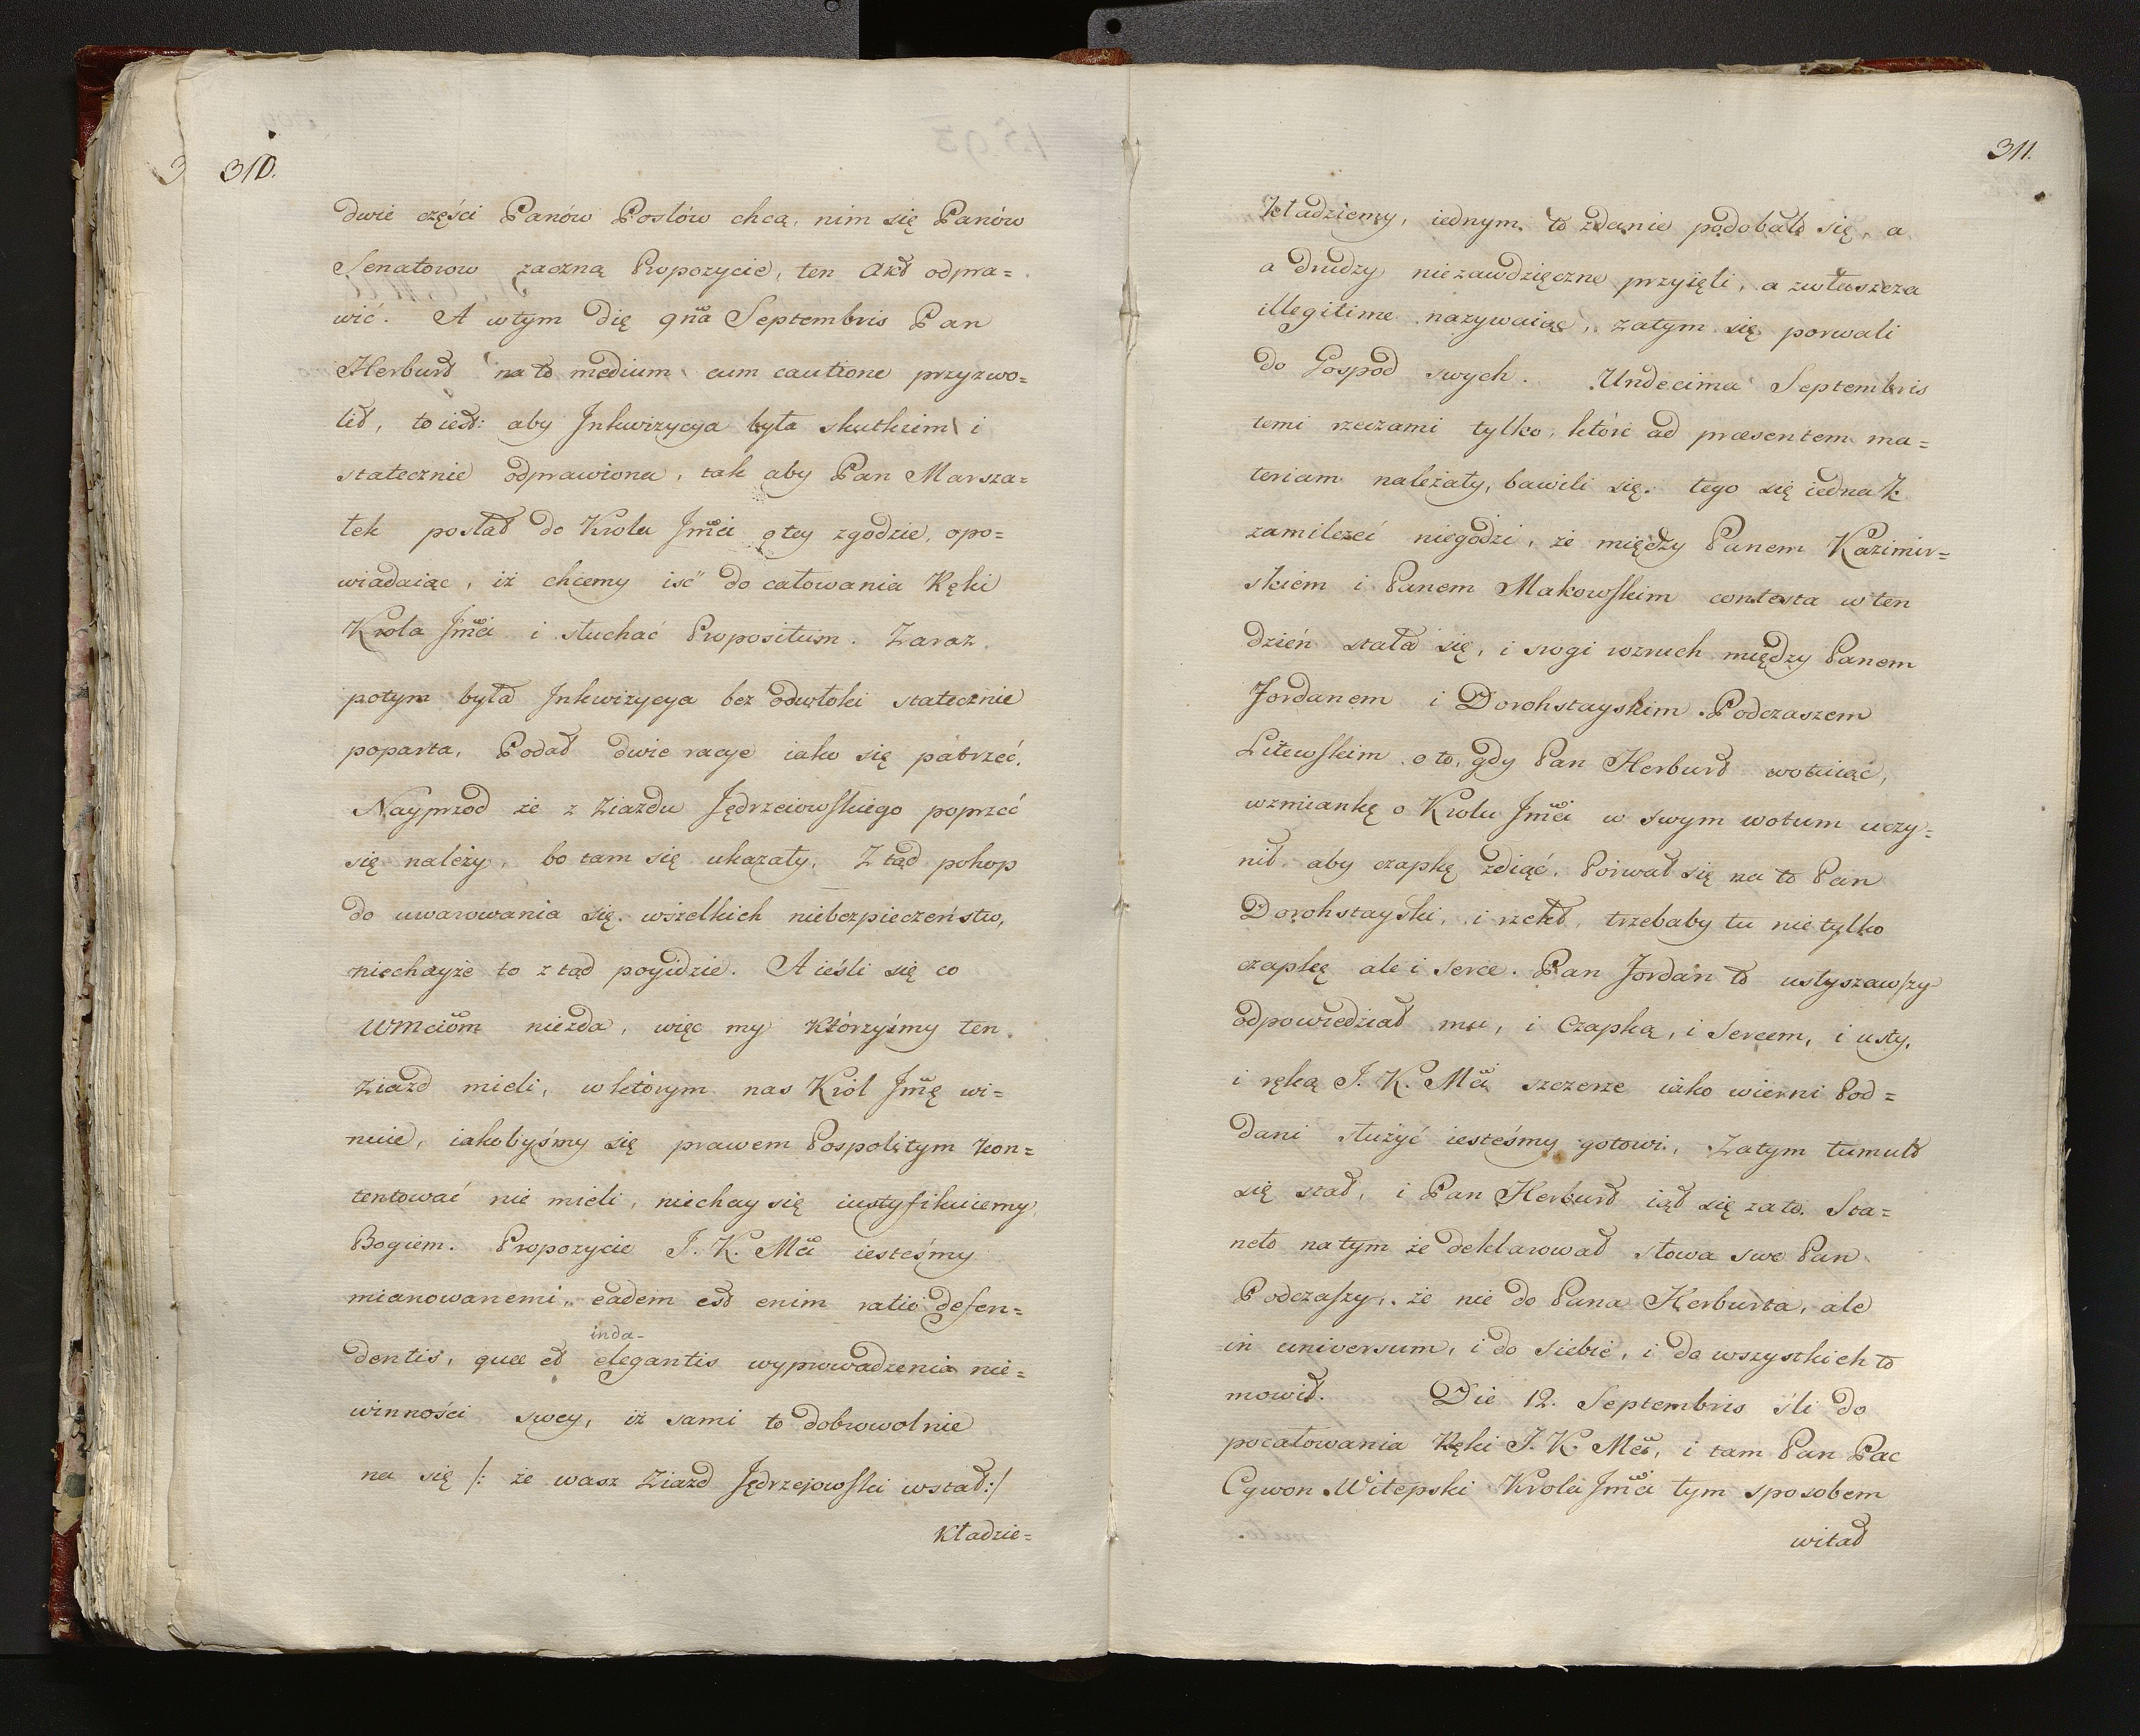 310.
dwie części Panów Posłów chcą, nim się Panów
Senatorow zaczną Propozycie, ten Akt odpra=
wić. A wtym Die 9na Septembris Pan
Herburt na to medium cum cautione przyzwo=
lił, to iest: aby Inkwizycya była skutkiem i
statecznie odprawiona, tak aby Pan Marsza=
łek posłał do Krola Jmći o tey zgodzie, opo=
wiadaiąc, iż chcemy iść do całowania Ręki
Krola Jmći i słuchać Propositum. Zaraz
potym była Inkwizycya bez odwłoki statecznie
poparta, Podał dwie racye iako się patrzeć.
Nayprzod że z Ziazdu Jędrzeiowskiego poprzeć
się należy, bo tam się ukazały, Z tąd pohop
do uwarowania się wszelkich niebezpieczeństw,
niechayże to z tąd poyidzie. A ieśli się co
WMciom niezda, więc my którzyśmy ten
Ziazd mieli, w którym nas Król Jmę wi=
nuie, iakobyśmy się prawem Pospolitym kon=
tentować nie mieli, niechay się iustyfikuiemy
Bogiem. Propozycie J. K. Mći iesteśmy
mianowanemi, eadem est enim ratio defen=
dentis, quae et elegantis wyprowadzenia nie=
inda-
winności swey, iż sami to dobrowolnie
na się /: że wasz Ziazd Jędrzejowski wstał :/
Kładzie=
311.
kładziemy, iednym to zdanie podobało się, a
a drudzy niezawdzięczne przyięli, a zwłaszcza
illegitime nazywaiąc, zatym się porwali
do Gospod swych. Undecima Septembris
temi rzeczami tylko, któré ad præsentem ma=
teriam należały, bawili się. tego się iednak
zamilczeć niegodzi, że między Panem Kazimir=
skiem i Panem Makowskim contesta w ten
dzień stała się, i srogi rozruch między Panem
Jordanem i Dorohstayskim Podczaszem
Litewskim o to, gdy Pan Herburt wotuiąc,
wzmiankę o Krolu Jmći w swym wotum uczy=
nił, aby czapkę zdiąć. Poirwał się na to Pan
Dorohstayski, i rzekł, trzebaby tu nie tylko
czapkę ale i serce. Pan Jordan to usłyszawszy
odpowiedział mu, i Czapką, i Sercem, i usty,
i ręką J. K. Mći szczerze iako wierni Pod=
dani służyć iesteśmy gotowi, Zatym tumult
się stał, i Pan Herburt iął się za to. Sta=
neło na tym że deklarował słowa swe Pan
Podczaszy, że nie do Pana Herburta, ale
in universum, i do siebie, i do wszystkich to
mowił. Die 12. Septembris śli do
pocałowania Ręki J. K. Mći, i tam Pan Pac
Cywon Witepski Krola Jmći tym sposobem
witał